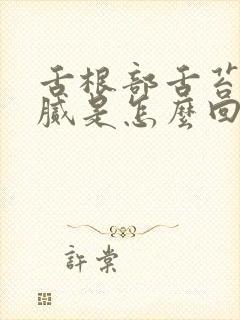 舌根部舌苔
膩是怎麼回
許棠